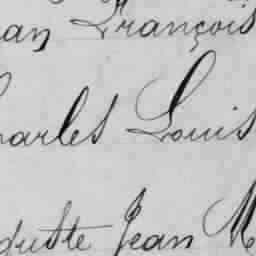 ean François
harles Louis
guste Jean M